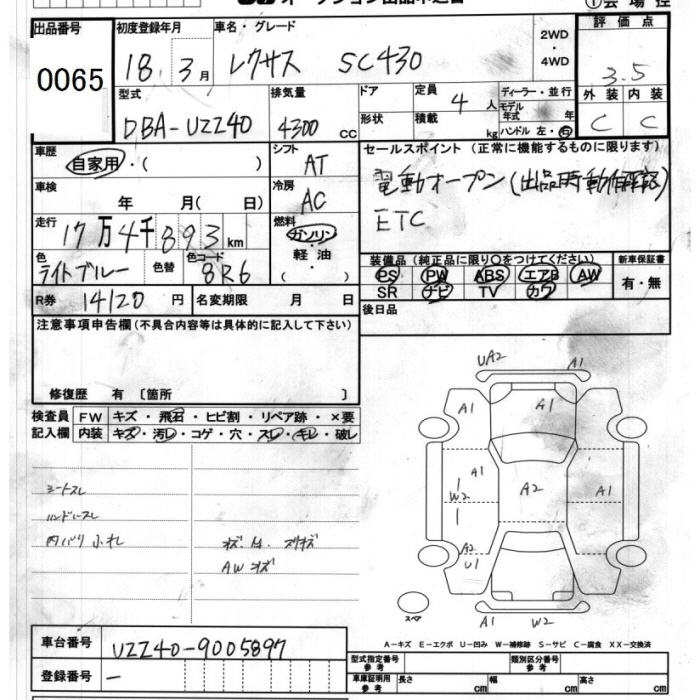 オークション出品申込書
出品番号
0065
初度登録年月
18. 3月
車名・グレード
レクサス SC430
2WD
・
4WD
評価点
3.5
外装 内装
C C
型式
DBA-UZZ40
排気量
4300 cc
ドア
形状
定員 4 人
積載 kg
ディーラー・並行
モデル年式 年
ハンドル 左・右
車歴
自家用・( )
シフト
AT
セールスポイント(正常に機能するものに限ります)
電動オープン(出品時動作確認)
ETC
車検
年 月( 日)
冷房
AC
走行
17万4千893km
燃料
ガソリン
・
軽油
・( )
色
ライトブルー
色替
色コード
8R6
装備品(純正品に限り○をつけてください) 新車保証書
PS PW ABS エアB AW
SR ナビ TV カワ
有・無
R券 14120円
名変期限 月 日
後日品
注意事項申告欄(不具合内容等は具体的に記入して下さい)
修復歴 有 〔箇所 〕
検査員
記入欄
FW キズ・飛石・ヒビ割・リペア跡・×要
内装 キズ・汚レ・コゲ・穴・スレ・キレ・破レ
シートスレ
ハンドルスレ
内バリ小キレ
AWキズ
UA2 A1
A1 A1
A1
W2
A2 A1
A2
U1
A1 W2
スペア
A-キズ E-エクボ U-凹み W-補修跡 S-サビ C-腐食 XX-交換済
車台番号
UZZ40-9005897
登録番号
-
型式指定番号
参考
類別区分番号
参考
車庫証明用
参考
長さ cm 幅 cm 高さ cm